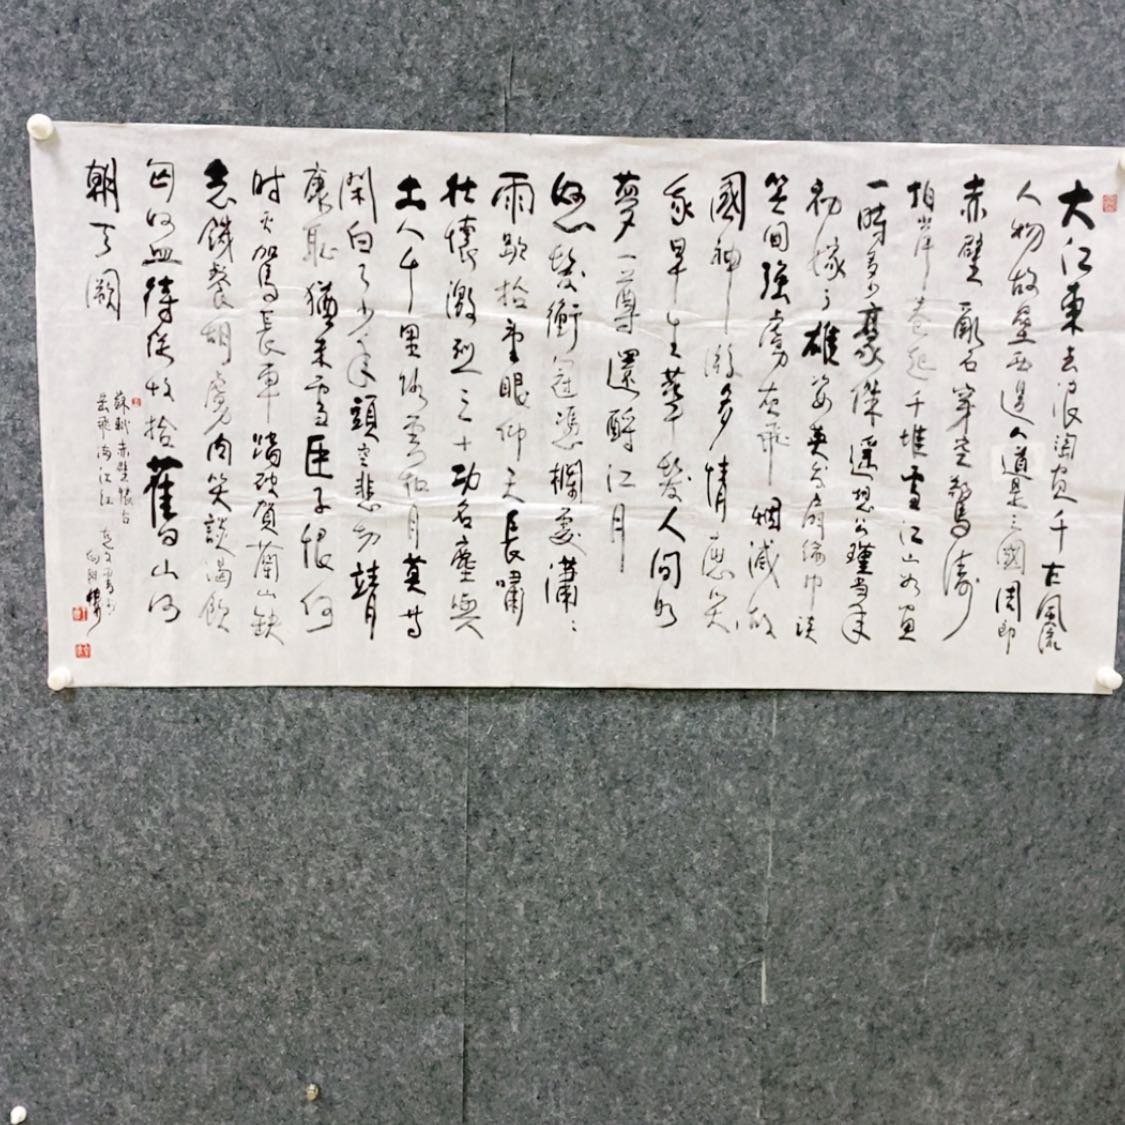 大江東去浪淘盡千古風流
人物故壘西邊人道是三國周郎
赤壁亂石穿空驚濤
拍岸卷起千堆雪江山如畫
一時多少豪傑遙想公瑾當年
初嫁了雄姿英發羽綸巾談
笑間強虜灰飛煙滅故
國神游多情應笑
我早生華髮人間如
夢一尊還酹江月
怒髮衝冠憑欄處瀟瀟
雨歇抬望眼仰天長嘯
壯懷激烈三十功名塵與
土八千里路雲和月莫等
閑白了少年頭空悲切靖
康恥猶未雪臣子恨何
時滅駕長車踏破賀蘭山缺
志饑餐胡虜肉笑談渴飲
匈奴血待從頭收拾舊山河
朝天闕
蘇軾赤壁懷古
岳飛滿江紅